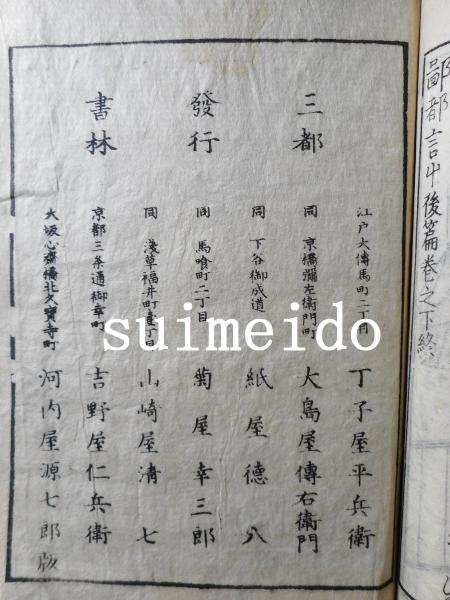 鄙都言中後篇巻之下終
三都
發行
書林
江戸大傳馬町二丁目 丁子屋平兵衛
同 京橋彌左衛門町 大島屋傳右衛門
同 下谷御成道 紙屋德八
同 馬喰町二丁目 菊屋幸三郎
同 淺草福井町壹丁目 山崎屋清七
京都三条通御幸町 吉野屋仁兵衛
大坂心齋橋北久寳寺町 河内屋源七郎版
suimeido